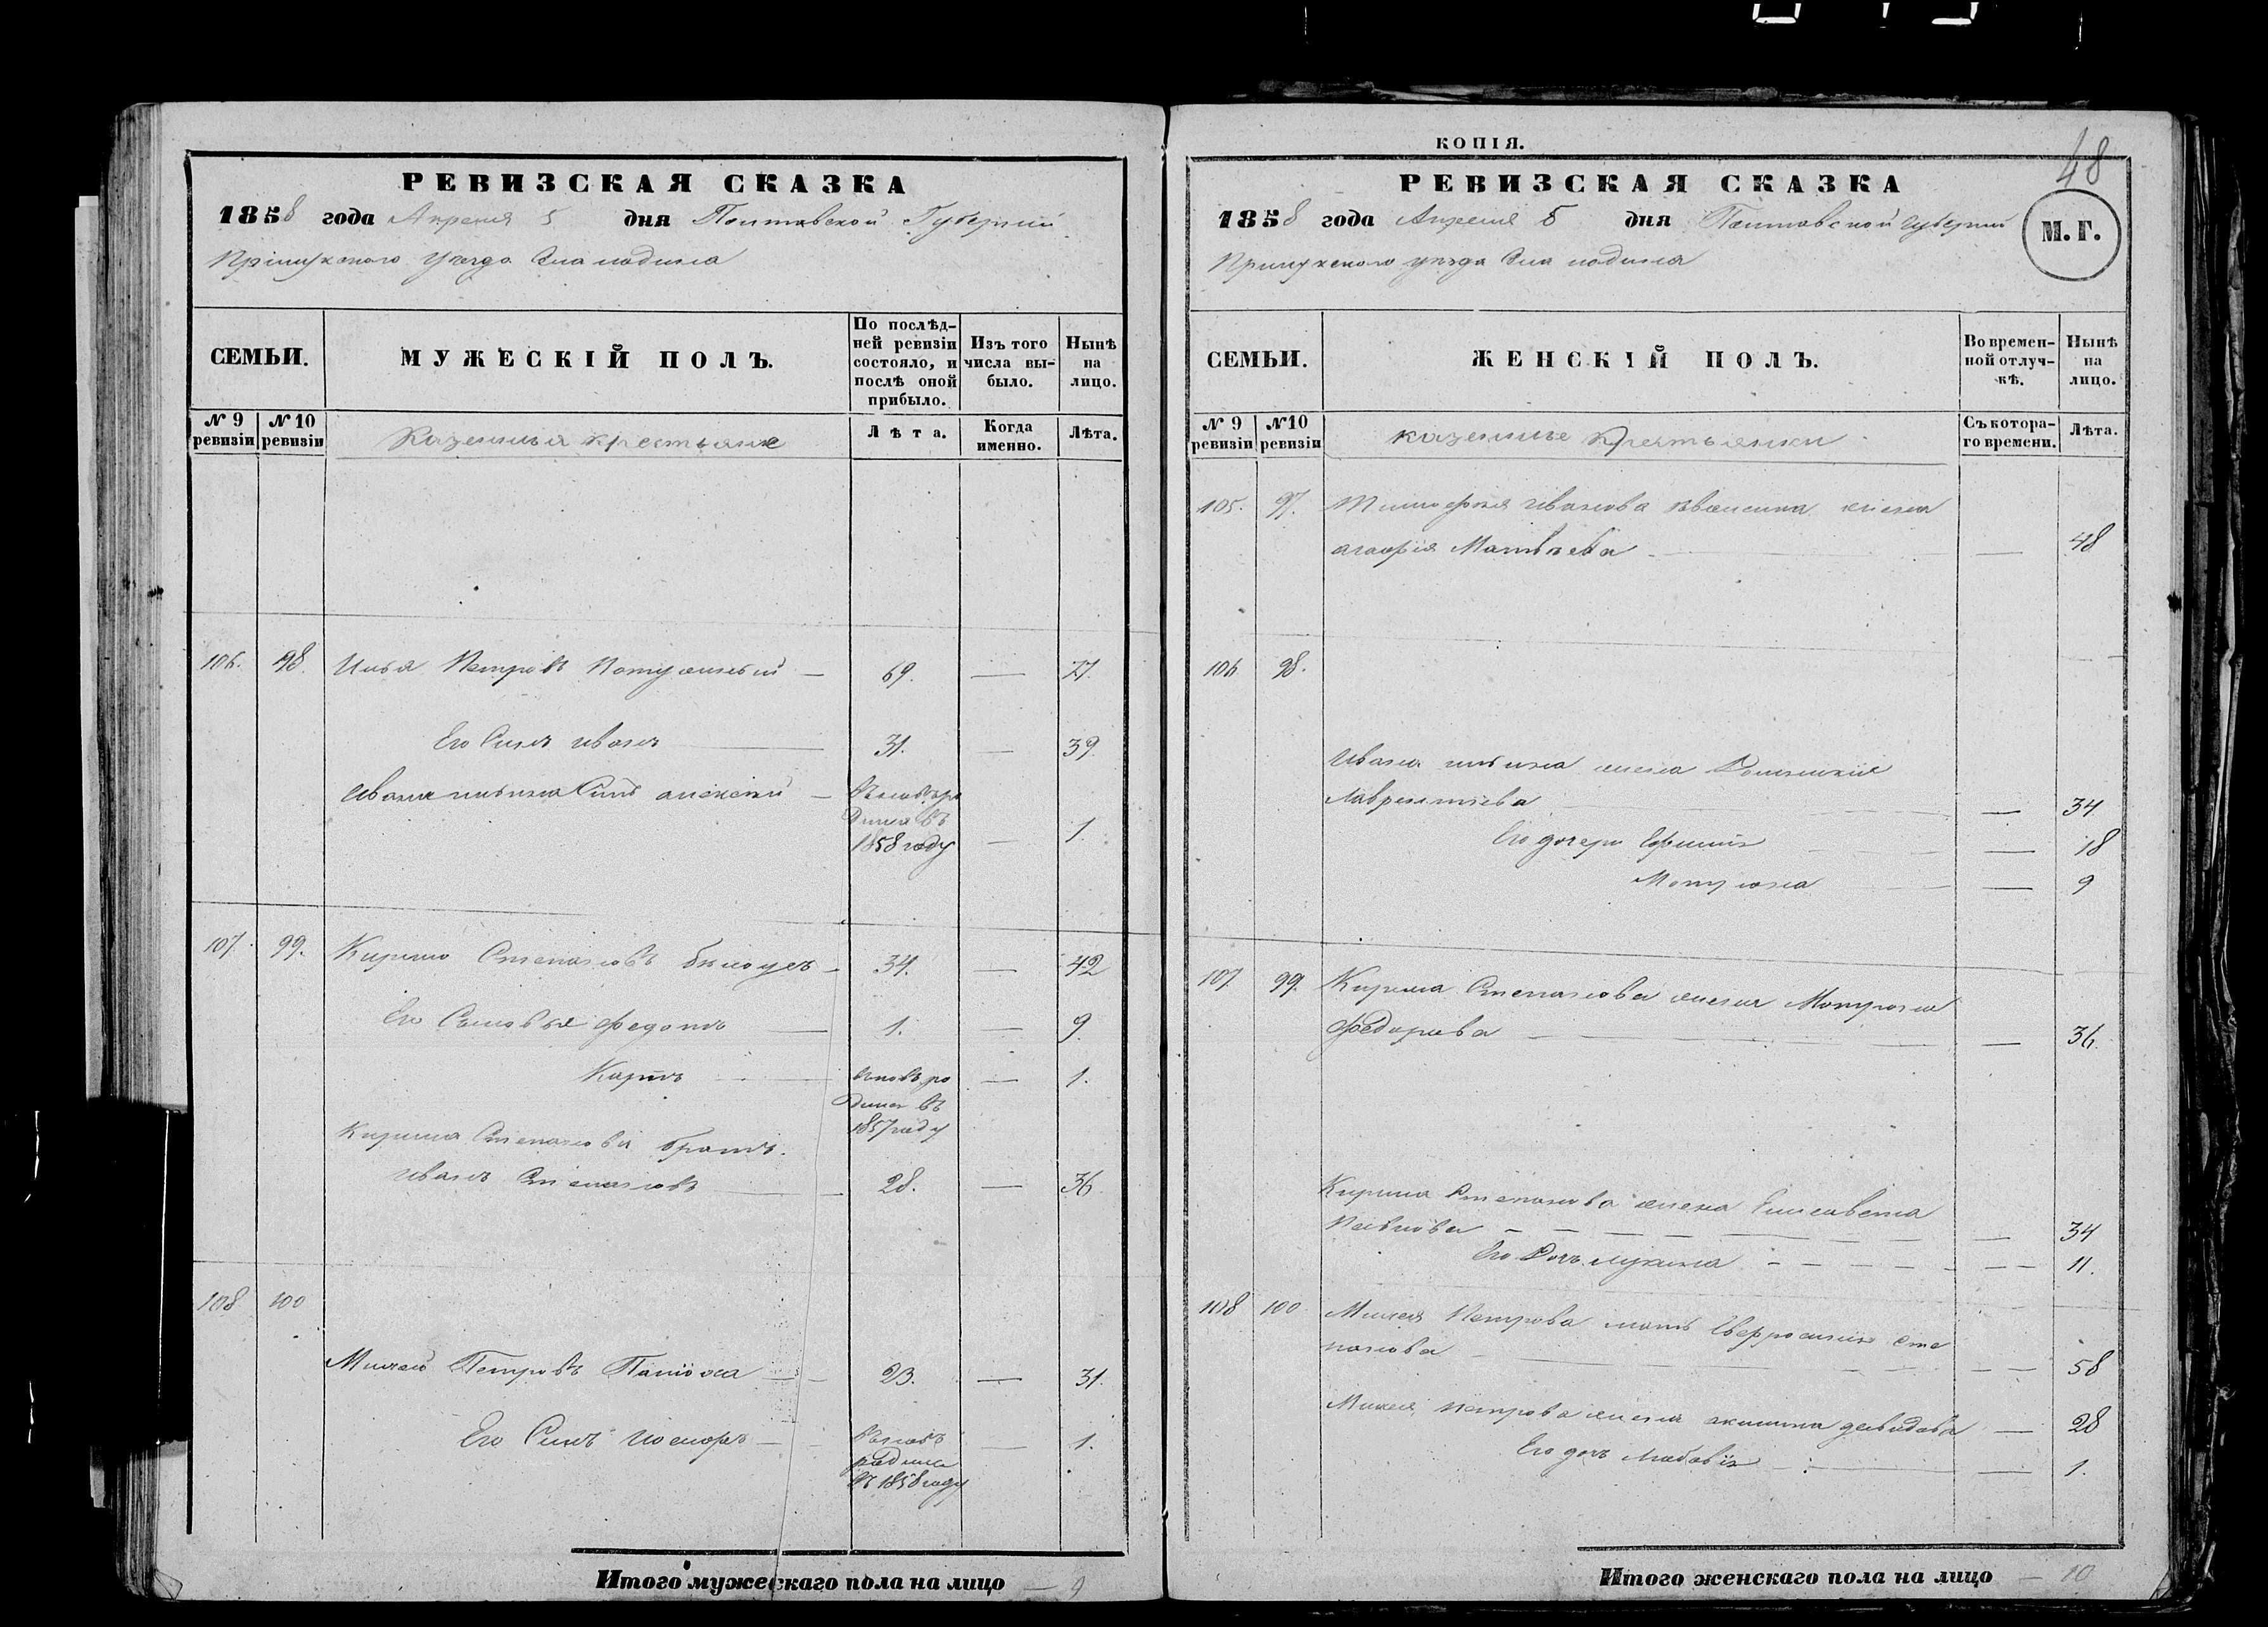 РЕВИЗСКАЯ СКАЗКА
1858 года Апреля 5 дня Полтавской Губернии
Прилукского Уезда
СЕМЬИ.
МУЖЕСКІЙ ПОЛЪ.
По послѣд-
ней ревизіи
состояло, и
послѣ оной
прибыло.
Изъ того
числа вы-
было.
Нынѣ
на
лицо.
№ 9
ревизіи
№ 10
ревизіи
Казенныя крестьяне
Лѣта.
Когда
именно.
Лѣта.
106. 98. Илья Петровъ — 69. — 77.
Его Сынъ иванъ — 31. — 39.
Ивана ильина Сынъ алексей —
1858 году — 1.
107. 99. Кирило Степановъ — 34. — 42
Его Сыновья федотъ — 1. — 9.
Карпъ — вновь ро — 1.
дился въ
1857 году
Кирила Степанова братъ
иванъ Степановъ — 28. — 36
108 100
Михайло Петровъ — 23. — 31.
Его Сынъ — вновь — 1.
родился
въ 1858 году
Итого мужескаго пола на лицо — 9
КОПІЯ.
48
РЕВИЗСКАЯ СКАЗКА
1858 года Апреля 5 дня Полтавской губернии
Прилукского уезда
М. Г.
СЕМЬИ.
ЖЕНСКІЙ ПОЛЪ.
Во времен-
ной отлуч-
кѣ.
Нынѣ
на
лицо.
№ 9
ревизіи
№ 10
ревизіи
казенные крестьянки
Съ котора-
го времени.
Лѣта.
105. 97. Тимофея иванова жена
Матвѣева — — 48
106 98.
Ивана ильина жена
Лаврентіева — — 34
Его дочери — — 18
Мотрона — — 9
107 99. Кирила Степанова жена Мотрона
федорова — — 36.
Кирила Степанова жена Елисавета
Павлова — — 34
Его Дочь — — 11.
108 100. Петрова мать Сте
панова — — 58
Петрова жена акилина давидова — 28
Его дочь — — 1.
Итого женскаго пола на лицо — 10